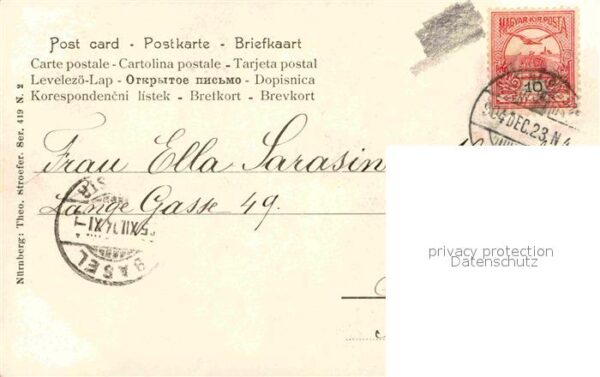 Post card - Postkarte - Briefkaart
Carte postale - Cartolina postale - Tarjeta postal
Levelező-Lap - Открытое письмо - Dopisnica
Korespondenční lístek - Bretkort - Brevkort
MAGYAR KIR. POSTA
10
904 DEC. 23. N 4
Frau Ella Sarasin
Lange Gasse 49.
BASEL
XII.04.XI
Nürnberg: Theo. Stroefer. Ser. 419 N. 2
privacy protection
Datenschutz